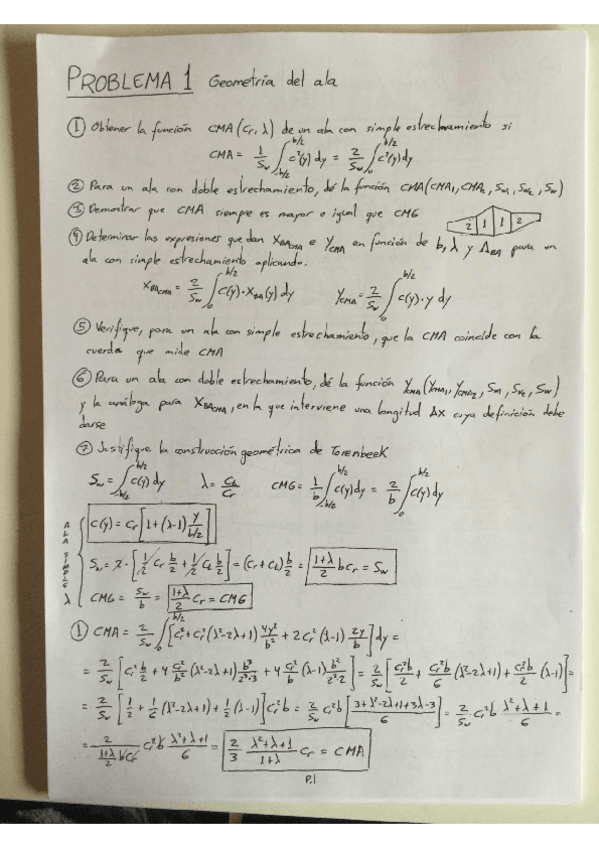 PROBLEMA 1 Geometría del ala
① Obtener la función CMA(Cr, λ) de un ala con simple estrechamiento si
CMA = 1/Sw ∫_{-b/2}^{b/2} c²(y) dy = 2/Sw ∫_0^{b/2} c²(y) dy
② Para un ala con doble estrechamiento, dé la función CMA(CMA₁, CMA₂, Sw₁, Sw₂, Sw)
③ Demostrar que CMA siempre es mayor o igual que CMG
2 1 1 2
④ Determinar las expresiones que dan X_BACMA e Y_CMA en función de b, λ y Λ_BA para un
ala con simple estrechamiento aplicando:
X_BACMA = 2/Sw ∫_0^{b/2} c(y)·X_BA(y) dy Y_CMA = 2/Sw ∫_0^{b/2} c(y)·y dy
⑤ Verifique, para un ala con simple estrechamiento, que la CMA coincide con la
cuerda que mide CMA
⑥ Para un ala con doble estrechamiento, dé la función Y_CMA(Y_CMA₁, Y_CMA₂, Sw₁, Sw₂, Sw)
y la análoga para X_BACMA, en la que interviene una longitud Δx cuya definición debe
darse
⑦ Justifique la construcción geométrica de Torenbeek
Sw = ∫_{-b/2}^{b/2} c(y) dy λ = Ct/Cr CMG = 1/b ∫_{-b/2}^{b/2} c(y) dy = 2/b ∫_0^{b/2} c(y) dy
ALA SIMPLE λ
c(y) = Cr [1 + (λ-1) y/(b/2)]
Sw = 2·[1/2 Cr b/2 + 1/2 Ct b/2] = (Cr + Ct) b/2 = (1+λ)/2 b Cr = Sw
CMG = Sw/b = (1+λ)/2 Cr = CMG
① CMA = 2/Sw ∫_0^{b/2} [Cr² + Cr² (λ²-2λ+1) 4y²/b² + 2Cr² (λ-1) 2y/b] dy =
= 2/Sw [Cr² b/2 + 4 Cr²/b² (λ²-2λ+1) b³/(2³·3) + 4 Cr²/b (λ-1) b²/(2²·2)] = 2/Sw [Cr²b/2 + Cr²b/6 (λ²-2λ+1) + Cr²b/2 (λ-1)] =
= 2/Sw [1/2 + 1/6 (λ²-2λ+1) + 1/2 (λ-1)] Cr²b = 2/Sw Cr²b [(3+λ²-2λ+1+3λ-3)/6] = 2/Sw Cr²b (λ²+λ+1)/6 =
= 2/((1+λ)/2 b Cr) Cr²b (λ²+λ+1)/6 = 2/3 (λ²+λ+1)/(1+λ) Cr = CMA
P.1